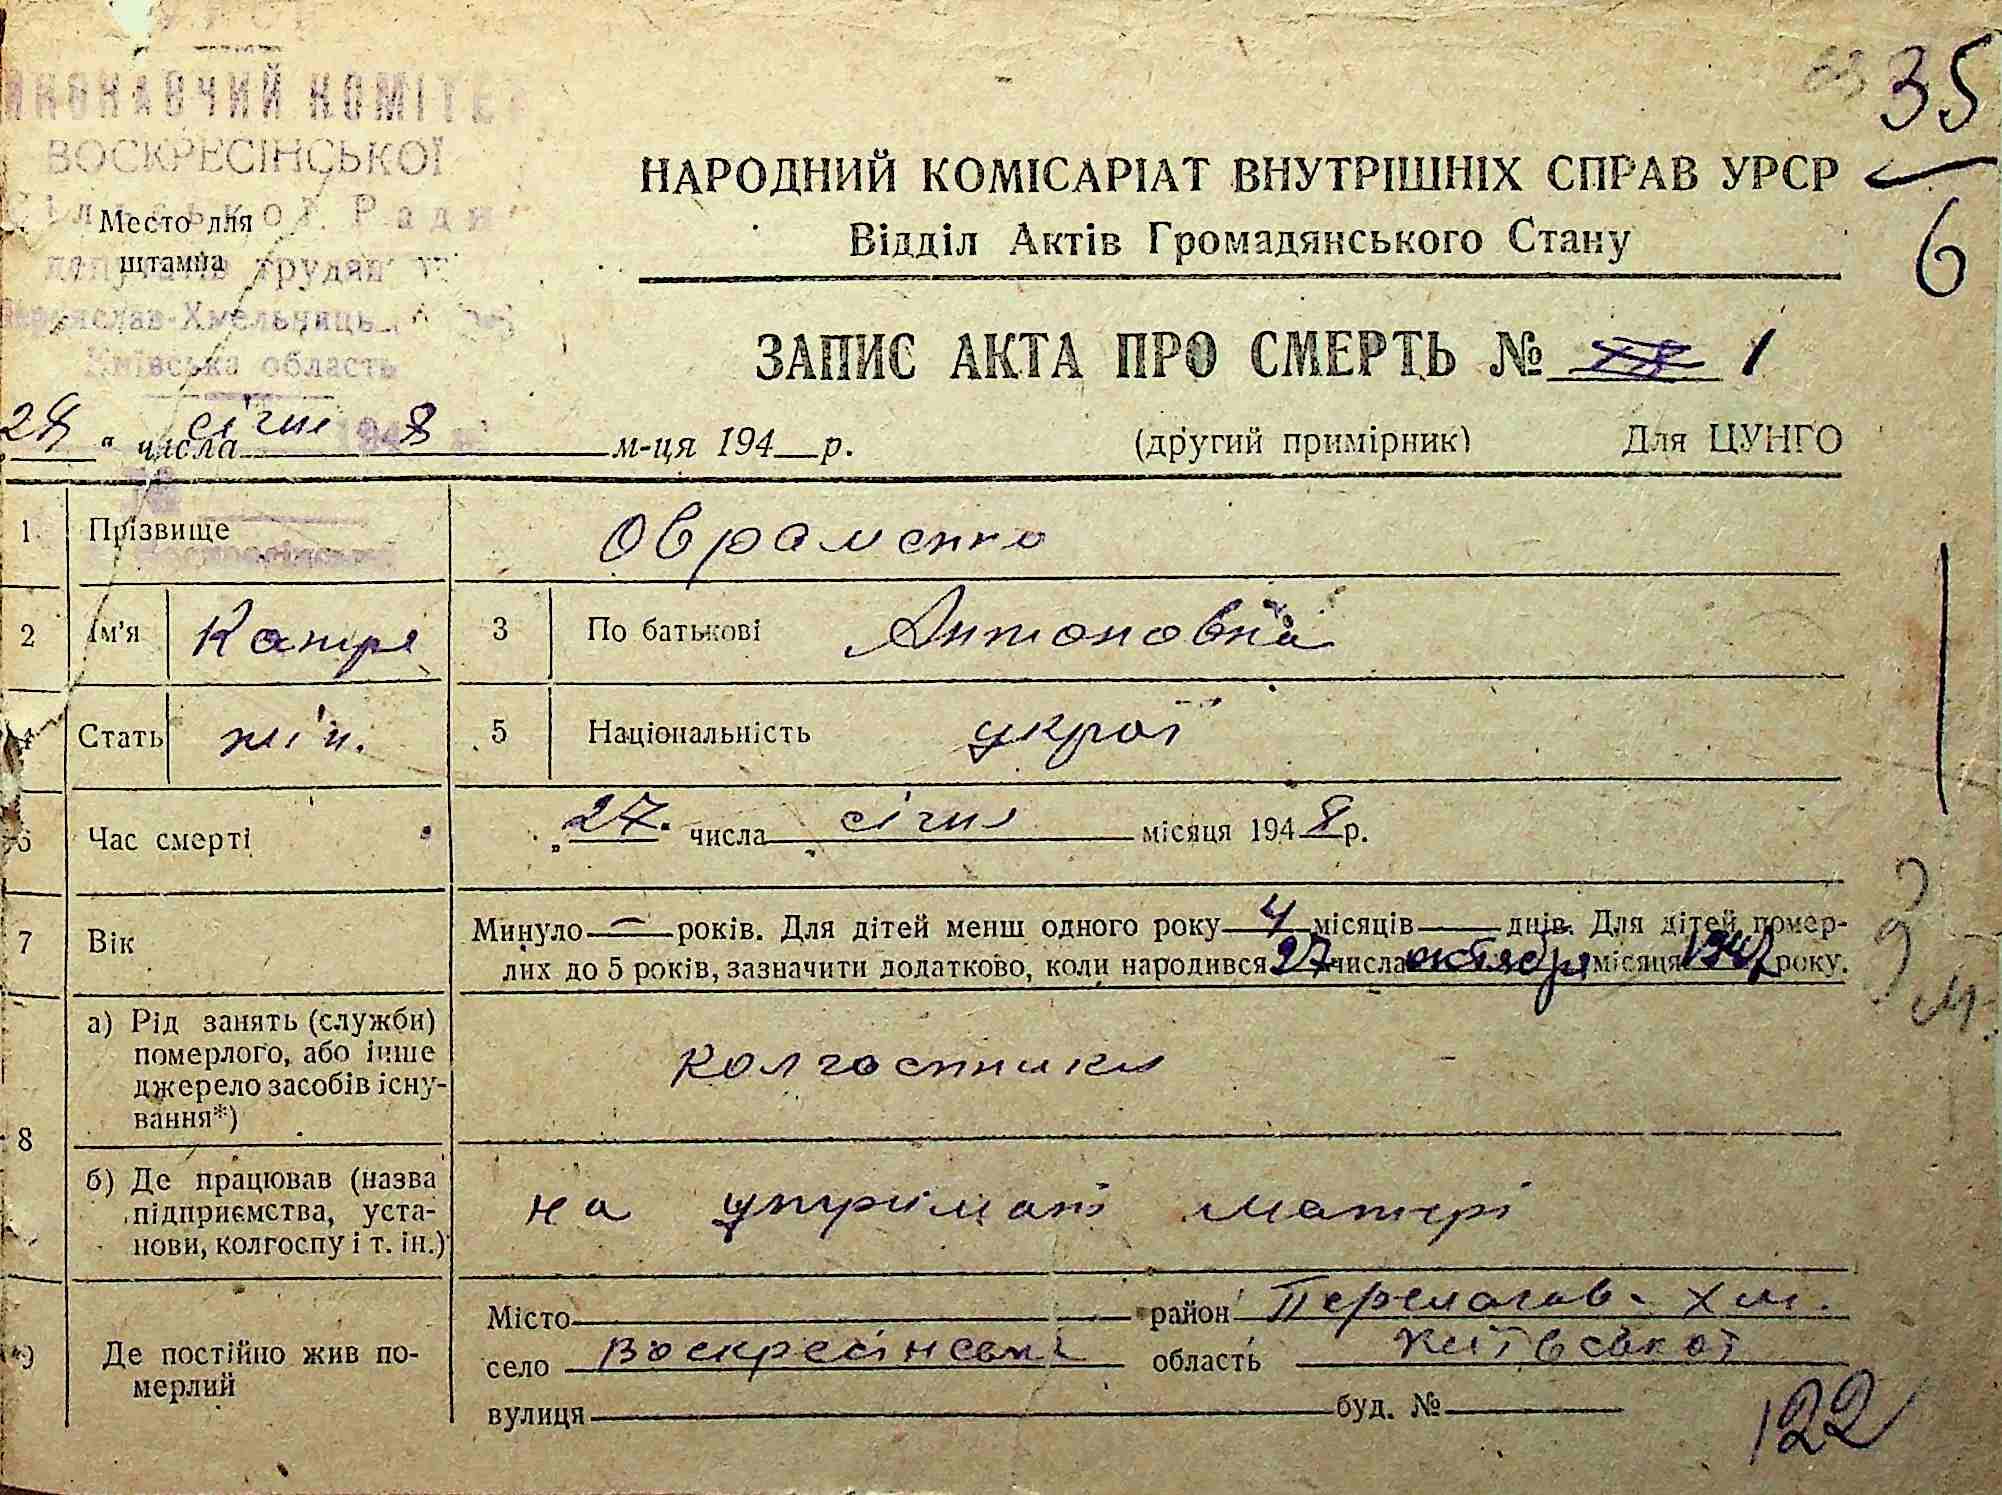 ВОСКРЕСІНСЬКОЇ
Место для
штампа
Київська область
35
6
НАРОДНИЙ КОМІСАРІАТ ВНУТРІШНІХ СПРАВ УРСР
Відділ Актів Громадянського Стану
ЗАПИС АКТА ПРО СМЕРТЬ № 1
28 " числа січня 8 м-ця 194 р. (другий примірник) Для ЦУНГО
1 Прізвище Овраменко
2 Ім'я Катря 3 По батькові Антоновна
4 Стать жін. 5 Національність украї
6 Час смерті „27. числа січня місяця 1948 р.
7 Вік Минуло — років. Для дітей менш одного року 4 місяців днів. Для дітей помер-
лих до 5 років, зазначити додатково, коли народився 27 числа октября місяця 1947 року.
3 м.
8 а) Рід занять (служби)
померлого, або інше
джерело засобів існу-
вання*) колгоспники
б) Де працював (назва
підприємства, уста-
нови, колгоспу і т. ін.) на утримані матері
9 Де постійно жив по-
мерлий
Місто район Переяслав-Хм.
село Воскресінські область Київської
вулиця буд. №
122